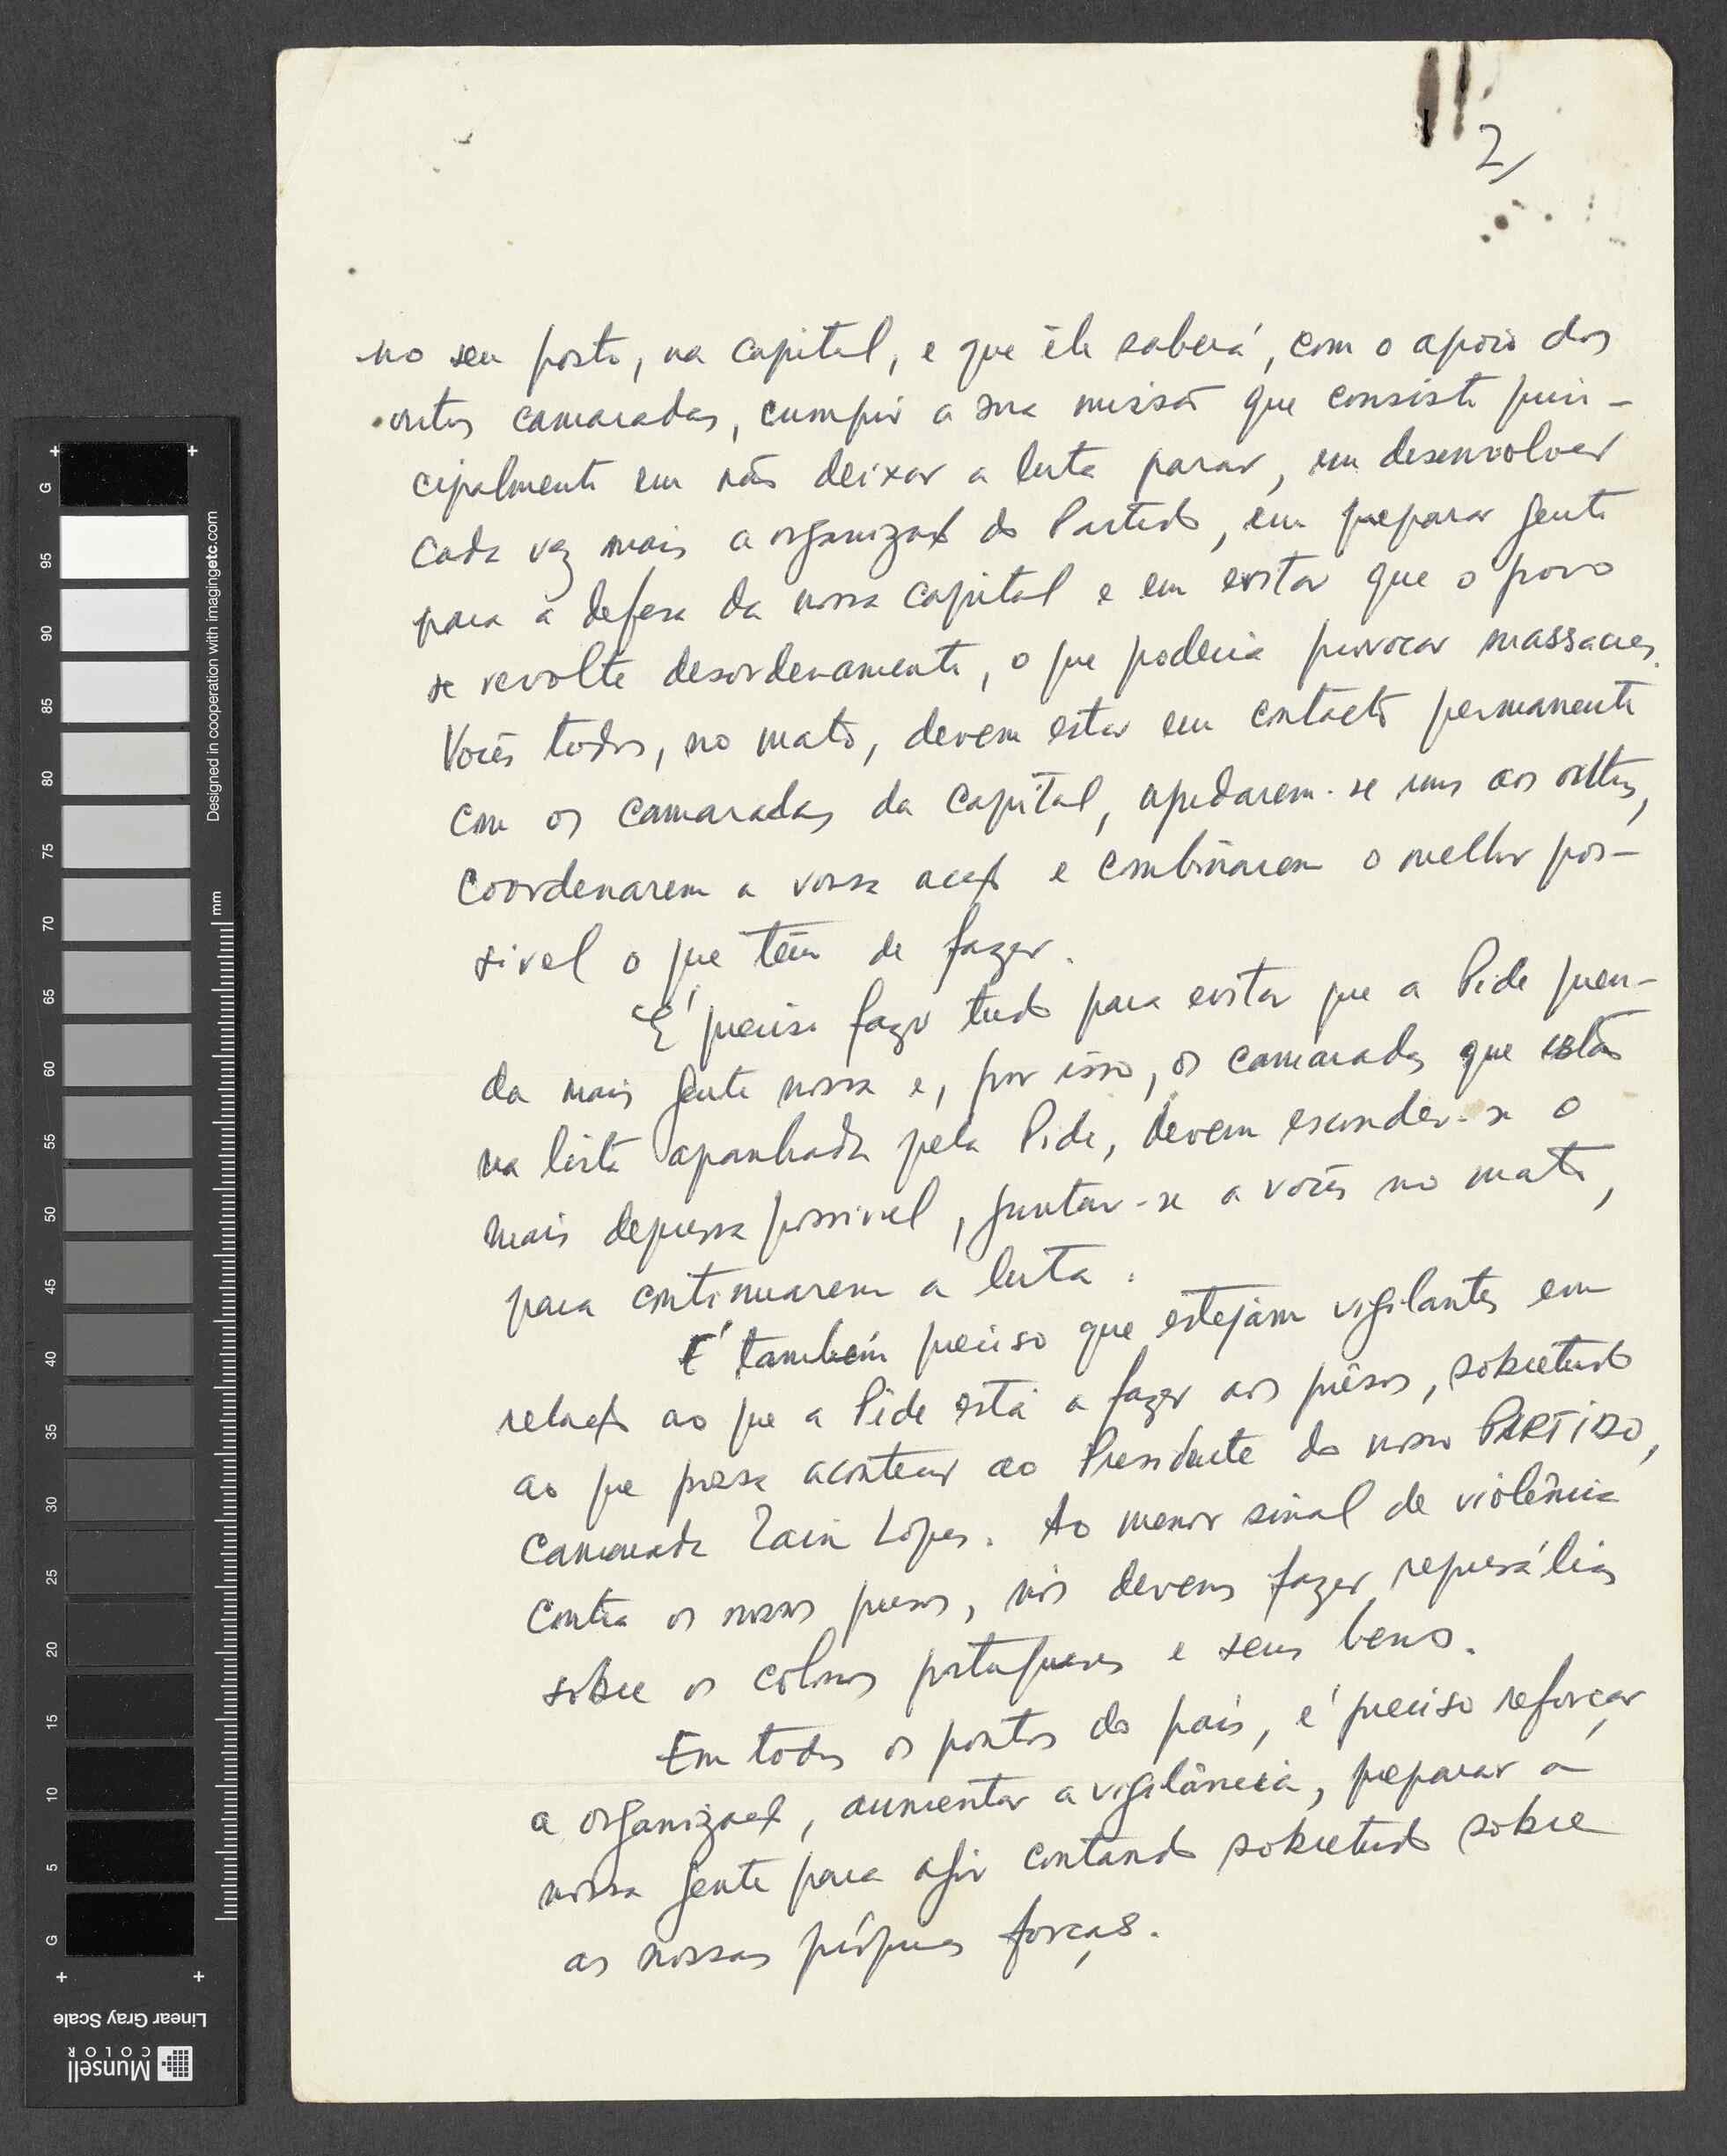 2/
no seu posto, na capital, e que êle saberá, com o apoio dos
outros camaradas, cumprir a sua missão que consiste prin-
cipalmente em não deixar a luta parar, em desenvolver
cada vez mais a organizaç̃ do Partido, em preparar gente
para a defesa da nossa capital e em evitar que o povo
se revolte desordenamente, o que poderia provocar massacres.
Vocês todos, no mato, devem estar em contacto permanente
com os camaradas da capital, ajudarem-se uns aos outros,
coordenarem a vossa acç̃ e combinarem o melhor pos-
sivel o que têm de fazer.
É preciso fazer tudo para evitar que a Pide pren-
da mais gente nossa e, por isso, os camaradas que estão
na lista apanhada pela Pide, devem esconder-se o
mais depressa possivel, juntar-se a vocês no mato,
para continuarem a luta.
É também preciso que estejam vigilantes em
relaç̃ ao que a Pide está a fazer aos prêsos, sobretudo
ao que possa acontecer ao Presidente do nosso PARTIDO,
Camarada Zain Lopes. Ao menor sinal de violência
contra os nossos presos, nós devemos fazer represálias
sobre os colonos portugueses e seus bens.
Em todos os pontos do país, é preciso reforçar
a organizaç̃, aumentar a vigilância, preparar a
nossa gente para agir contando sobretudo sobre
as nossas próprias forças.
G
95
90
85
80
75
70
65
60
55
50
45
40
35
30
25
20
15
10
5
G
mm
Designed in cooperation with imagingetc.com
Linear Gray Scale
Munsell
COLOR